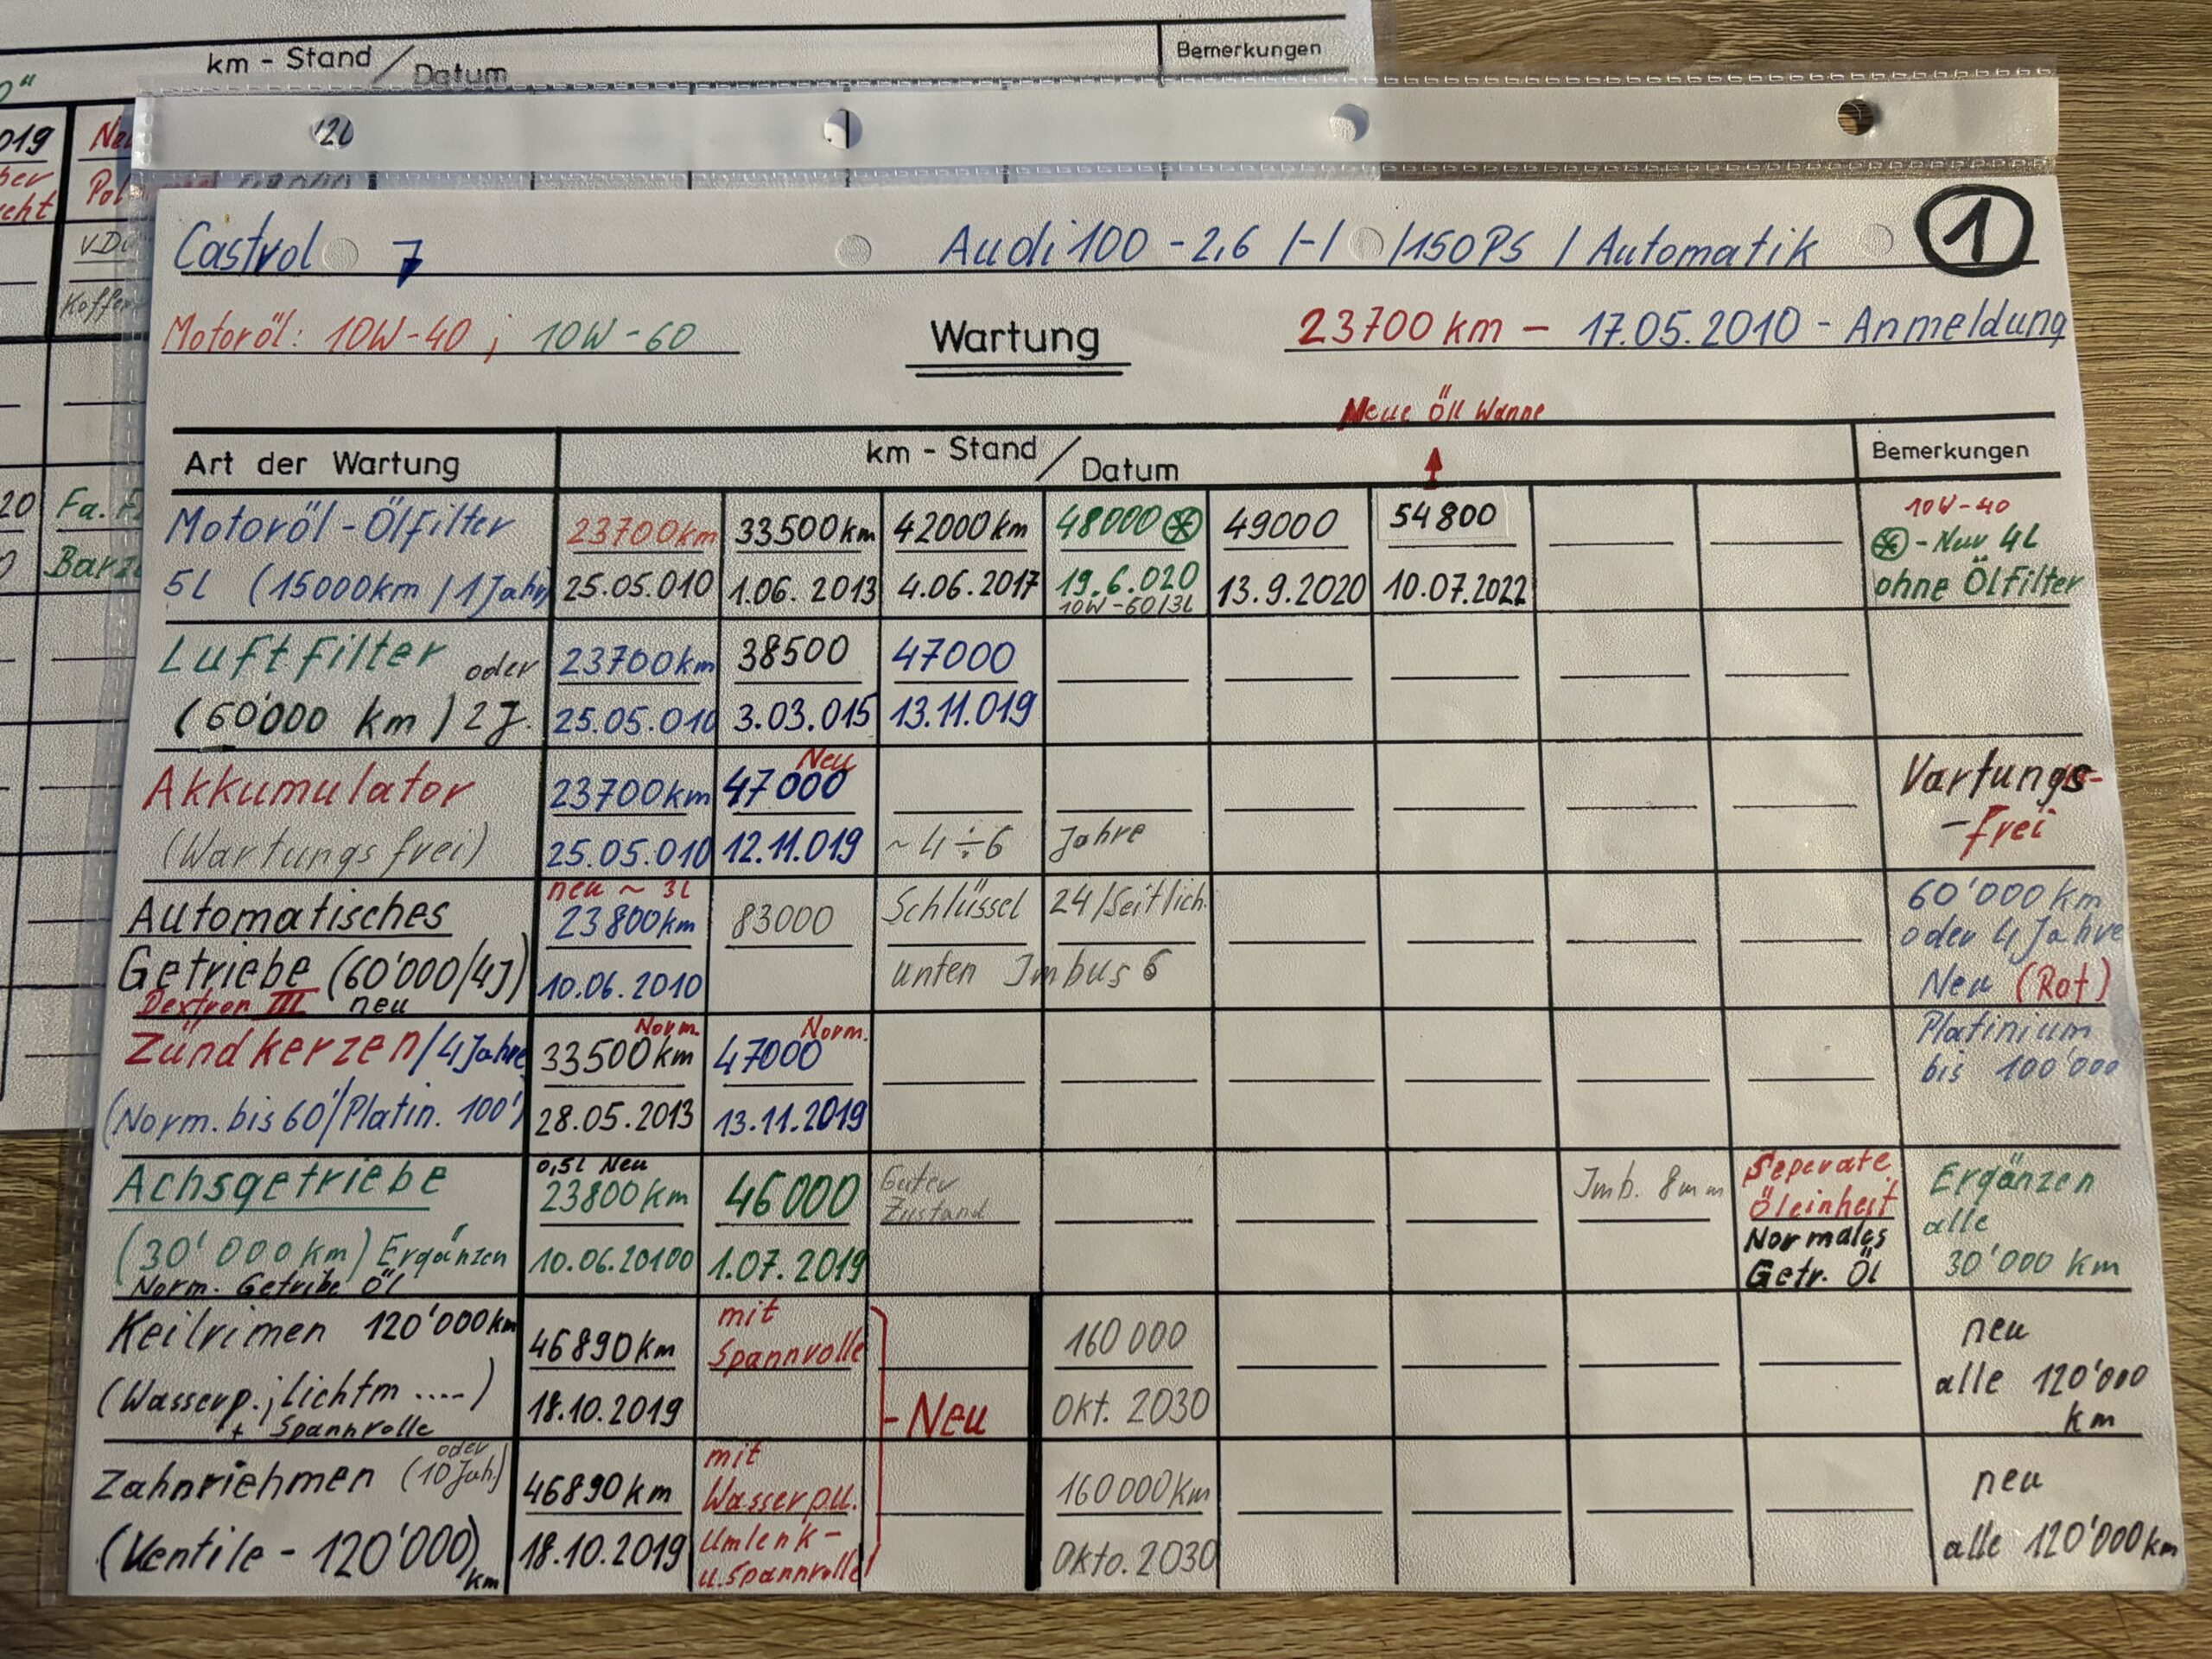 km - Stand / Datum
Bemerkungen
019
20
Fa.
Castrol 7
Audi 100 - 2,6 /-/ /150PS / Automatik
1
Motoröl: 10W-40 ; 10W-60
Wartung
23700 km - 17.05.2010 - Anmeldung
Neue Öll Wanne
Art der Wartung
km - Stand / Datum
Bemerkungen
Motoröl - Ölfilter
5L (15000km / 1 Jahr)
23700km
25.05.010
33500km
1.06.2013
42000km
4.06.2017
48000 ⊛
19.6.020
10W-60/3L
49000
13.9.2020
54800
10.07.2022
10W-40
⊛ - Nur 4L
ohne Ölfilter
Luftfilter oder
(60'000 km) 2J.
23700km
25.05.010
38500
3.03.015
47000
13.11.019
Akkumulator
(Wartungs frei)
23700km
25.05.010
Neu
47000
12.11.019
~ 4 ÷ 6 Jahre
Vartungs-
-frei
Automatisches
Getriebe (60'000/4J)
Dextron III neu
neu ~ 3L
23800km
10.06.2010
83000
Schlüssel 24/Seitlich.
unten Imbus 6
60'000 km
oder 4 Jahre
Neu (Rot)
Zündkerzen/4Jahre
(Norm. bis 60'/Platin. 100')
Norm.
33500km
28.05.2013
Norm.
47000
13.11.2019
Platinium
bis 100'000
Achsgetriebe
(30'000 km) Ergänzen
Norm. Getribe Öl
0,5L Neu
23800km
10.06.20100
46000
1.07.2019
Guter
Zustand
Imb. 8mm
Seperate
Öleinheit
Normales
Getr. Öl
Ergänzen
alle
30'000 km
Keilrimen 120'000km
(Wasserp.; lichtm ....)
+ Spannrolle
46890km
18.10.2019
mit
Spannrolle
- Neu
160000
Okt. 2030
neu
alle 120'000
km
Zahnriehmen oder (10 Jah.)
(Ventile - 120'000) km
46890km
18.10.2019
mit
Wasserpu.
Umlenk-
u. Spannrolle
160000km
Okto. 2030
neu
alle 120'000km